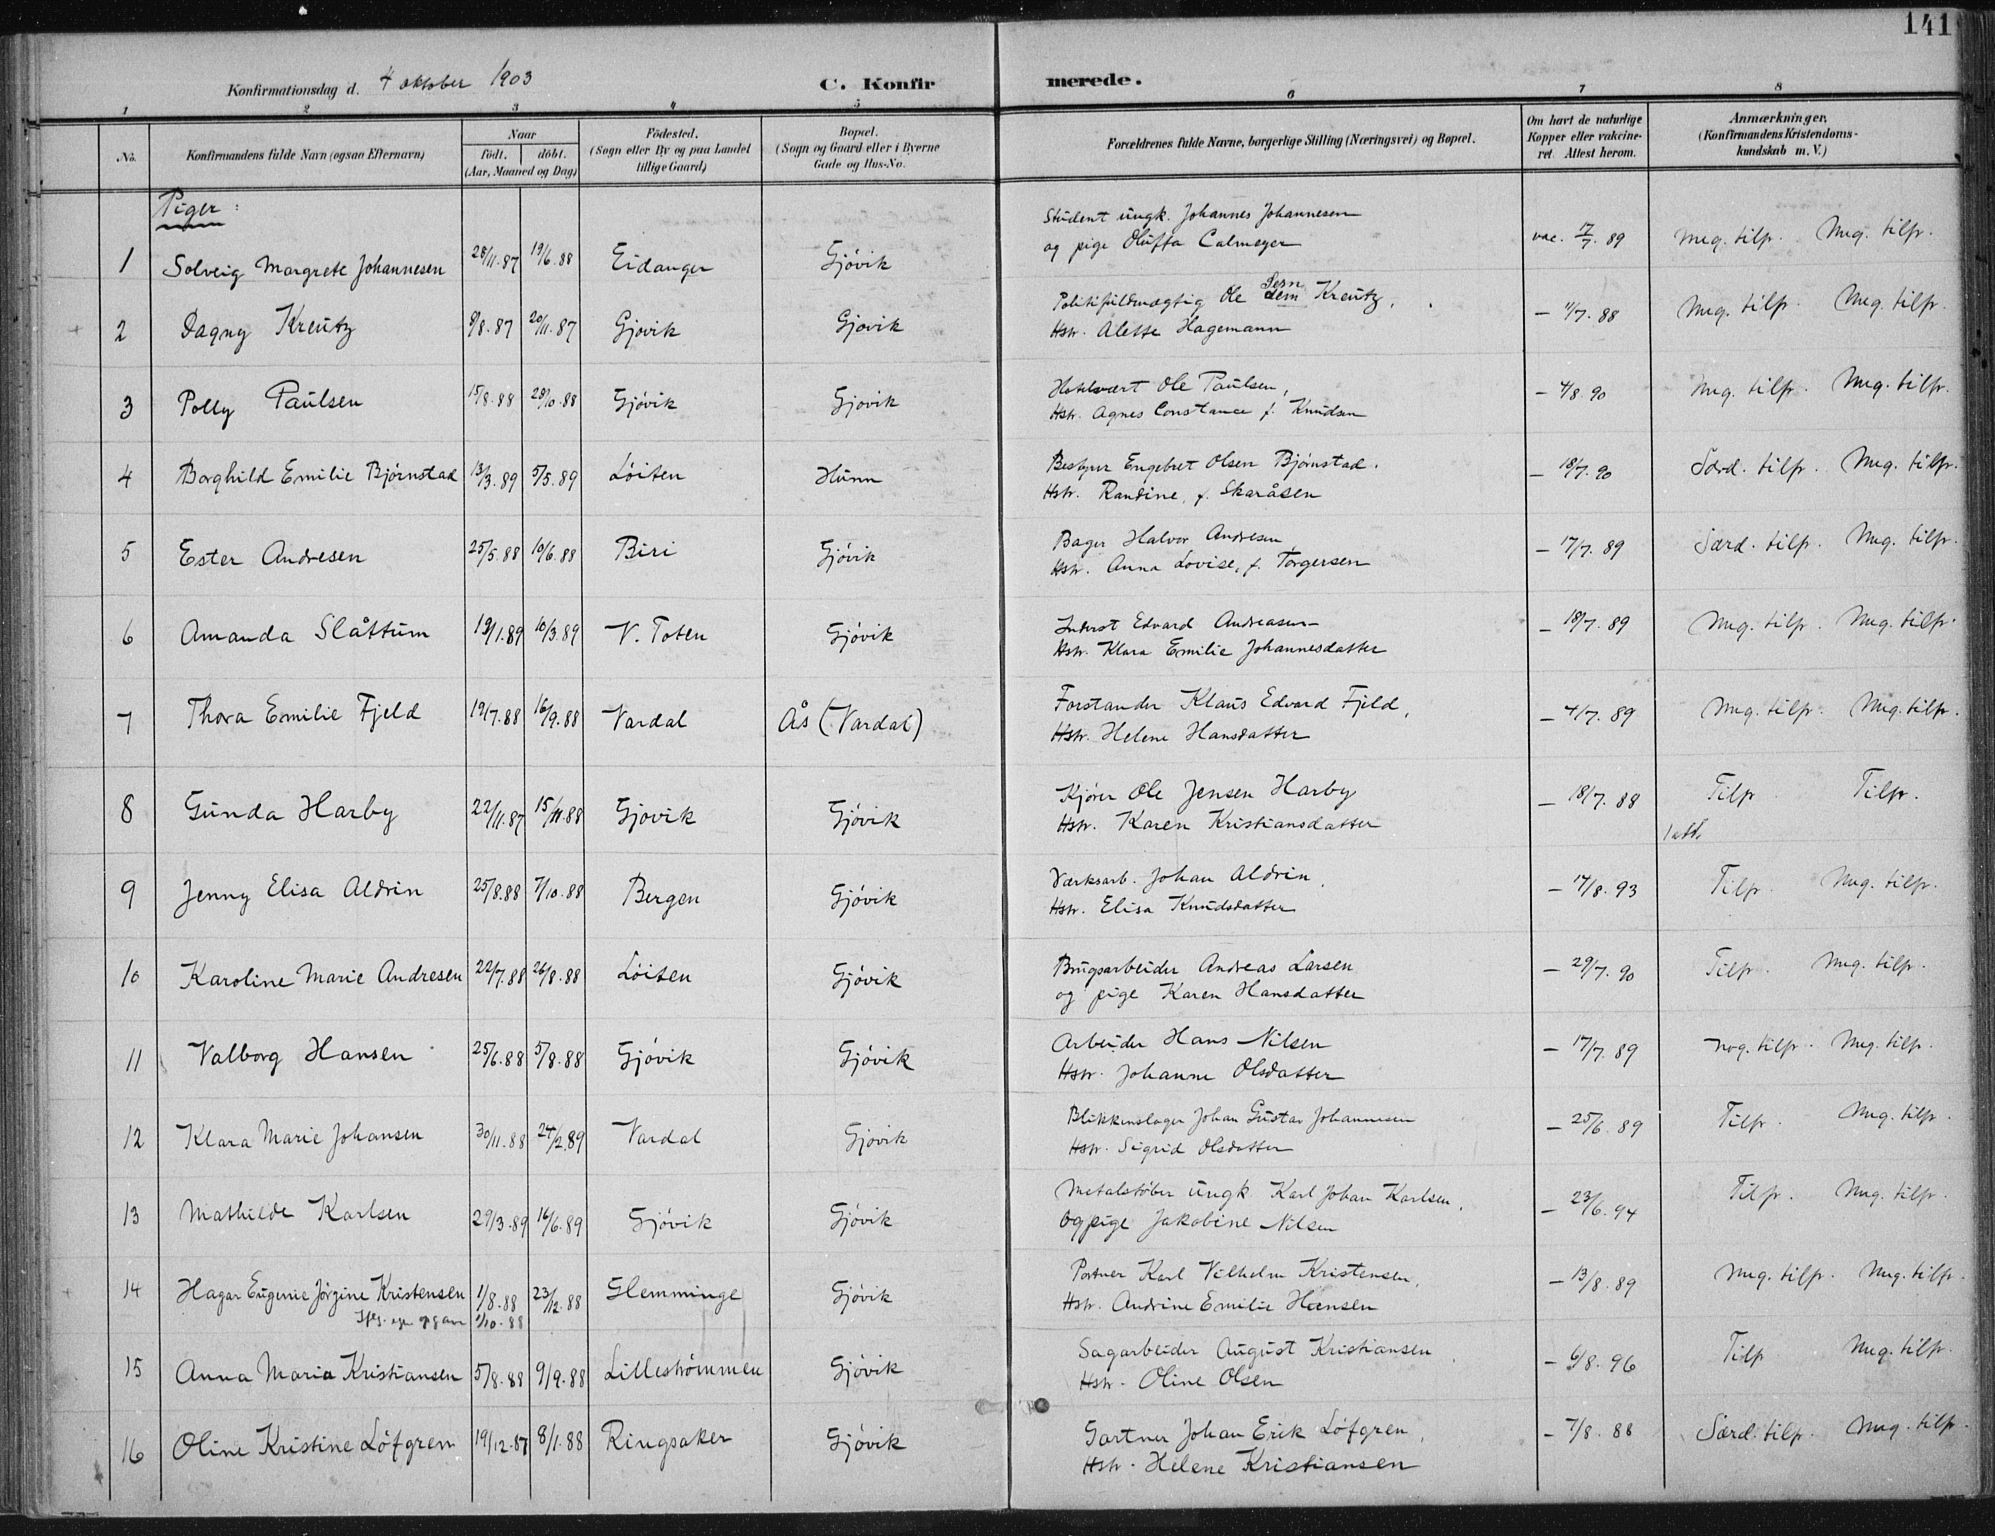 141
Konfirmationsdag d. 4 oktober 1903
C. Konfirmerede.
1 2 3 4 5 6 7 8
No.
Konfirmandens fulde Navn (ogsaa Efternavn)
Naar
født. døbt.
(Aar, Maaned og Dag)
Fødested.
(Sogn eller By og paa Landet
tillige Gaard)
Bopæl.
(Sogn og Gaard eller i Byerne
Gade og Hus-No.
Forældrenes fulde Navne, borgerlige Stilling (Næringsvei) og Bopæl.
Om havt de naturlige
Kopper eller vakcine-
ret. Attest herom.
Anmærkninger.
(Konfirmandens Kristendoms-
kundskab m. V.)
Piger:
Student ungk. Johannes Johannesen
1 Solveig Margrete Johannesen 28/11.87 19/6.88 Eidanger Gjøvik og pige Oluffa Calmeyer vac. 17/7. 89 Meg. tilfr. Meg. tilfr.
Politifuldmægtig Ole Sem Kreutz,
2 Dagny Kreutz 9/8.87 20/11.87 Gjøvik Gjøvik Hstr. Alette Hagemann – 11/7. 88 Meg. tilfr. Meg. tilfr.
Hotelvært Ole Paulsen,
3 Polly Paulsen 15/8.88 28/10.88 Gjøvik Gjøvik Hstr. Agnes Constance f. Knudsen – 4/8. 90 Meg. tilfr. Meg. tilfr.
Bestyrer Engebret Olsen Bjørnstad.
4 Borghild Emilie Bjørnstad 13/3.89 5/5.89 Løiten Hunn Hstr. Randine, f. Skaråsen – 18/7. 90 Særd. tilfr. Meg. tilfr.
Bager Halvor Andresen
5 Ester Andresen 25/5.88 10/6.88 Biri Gjøvik Hstr. Anna Lovise, f. Torgersen – 17/7. 89 Særd. tilfr. Meg. tilfr.
Inderst Edvard Andreasen
6 Amanda Slåttum 19/1.89 10/3.89 V. Toten Gjøvik Hstr. Klara Emilie Johannesdatter – 18/7. 89 Meg. tilfr. Meg. tilfr.
Forstander Klaus Edvard Fjeld,
7 Thora Emilie Fjeld 19/7.88 16/9.88 Vardal Ås (Vardal) Hstr. Helene Hansdatter – 4/7. 89 Meg. tilfr. Meg. tilfr.
Kjører Ole Jensen Harby
8 Gunda Harby 22/11.87 15/11.88 Gjøvik Gjøvik Hstr. Karen Kristiansdatter – 18/7. 88 Tilfr. Tilfr.
Værksarb. Johan Aldrin,
9 Jenny Elisa Aldrin 25/8.88 7/10.88 Bergen Gjøvik Hstr. Elisa Knudsdatter – 17/8. 93 Tilfr. Meg. tilfr.
Brugsarbeider Andreas Larsen
10 Karoline Marie Andresen 22/7.88 26/8.88 Løiten Gjøvik og pige Karen Hansdatter – 29/7. 90 Tilfr. Meg. tilfr.
Arbeider Hans Nilsen
11 Valborg Hansen 25/6.88 5/8.88 Gjøvik Gjøvik Hstr. Johanne Olsdatter – 17/7. 89 nog. tilfr. Meg. tilfr.
Blikkenslager Johan Gustav Johannesen
12 Klara Marie Johansen 30/11.88 24/2.89 Vardal Gjøvik Hstr. Sigrid Olsdatter – 25/6. 89 Tilfr. Meg. tilfr.
Metalstøber ungk. Karl Johan Karlsen,
13 Mathilde Karlsen 29/3.89 16/6.89 Gjøvik Gjøvik og pige Jakobine Nilsen – 23/6. 94 Tilfr. Meg. tilfr.
Portner Karl Vilhelm Kristensen,
14 Hagar Eugenie Jørgine Kristensen 1/8.88 23/12.88 Glemminge Gjøvik Hstr. Andrine Emilie Hansen – 13/8. 89 Meg. tilfr. Meg. tilfr.
1/10.88
Sagarbeider August Kristiansen
15 Anna Maria Kristiansen 5/8.88 9/9.88 Lillestrømmen Gjøvik Hstr. Oline Olsen – 6/8. 96 Tilfr. Meg. tilfr.
Gartner Johan Erik Løfgren,
16 Oline Kristine Løfgren 19/12.87 8/1.88 Ringsaker Gjøvik Hstr. Helene Kristiansen – 7/8. 88 Særd. tilfr. Meg. tilfr.